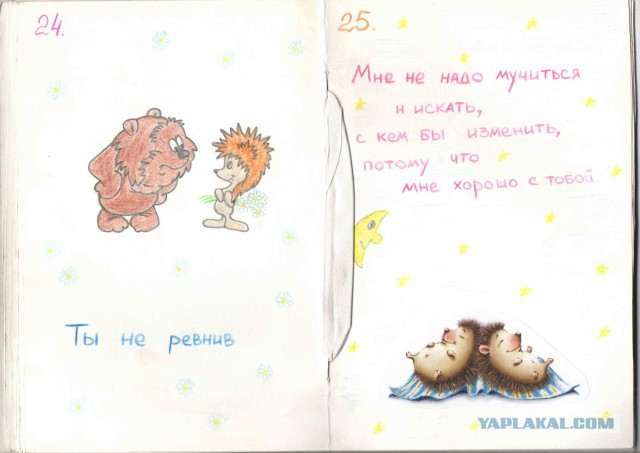 24.
Ты не ревнив
25.
Мне не надо мучиться
и искать,
с кем бы изменить,
потому что
мне хорошо с тобой.
YAPLAKAL.COM